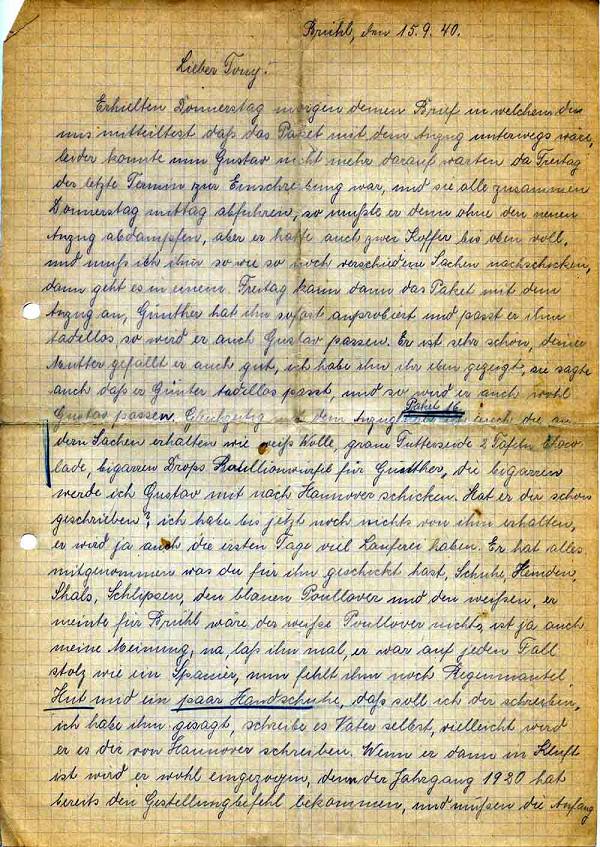 Brühl, den 15.9.40.
Lieber Tony!
Erhielten Donnerstag morgen deinen Brief in welchem du
uns mitteiltest daß das Paket mit dem Anzug unterwegs wäre,
leider konnte nun Gustav nicht mehr darauf warten da Freitag
der letzte Termin zur Einschreibung war, und sie alle zusammen
Donnerstag mittag abfuhren, so mußte er denn ohne den neuen
Anzug abdampfen, aber er hatte auch zwei Koffer bis oben voll,
und muß ich ihm so wie so noch verschiedene Sachen nachschicken,
dann geht es in einem. Freitag kam dann das Paket mit dem
Anzug an, Günther hat ihn sofort anprobiert und passt er ihm
tadellos so wird er auch Gustav passen. Er ist sehr schön, deiner
Mutter gefällt er auch gut, ich habe ihn ihr eben gezeigt, sie sagte
auch daß er Günter tadellos passt, und so wird er auch wohl
Paket 16
Gustav passen. Gleichzeitig mit dem Anzug auch die an
dern Sachen erhalten wie weiß Wolle, grau Futterseide 2 Tafeln Choco
lade, Zigarren Drops Bouillonwürfel für Günther, die Zigarren
werde ich Gustav mit nach Hannover schicken. Hat er dir schon
geschrieben? ich habe bis jetzt noch nichts von ihm erhalten,
er wird ja auch die ersten Tage viel Lauferei haben. Er hat alles
mitgenommen was du für ihn geschickt hast, Schuhe, Hemden,
Shals, Schlipsen, den blauen Poullover und den weißen, er
meinte für Brühl wäre der weiße Poullover nichts, ist ja auch
meine Meinung, na laß ihn mal, er war auf jeden Fall
stolz wie ein Spanier, nun fehlt ihm noch Regenmantel
Hut und ein paar Handschuhe, daß soll ich dir schreiben,
ich habe ihm gesagt, schreibe es Vater selbst, vielleicht wird
er es dir von Hannover schreiben. Wenn er dann in Kluft
ist wird er wohl eingezogen, denn der Jahrgang 1920 hat
bereits den Gestellungbefehl bekommen, und müßen die Anfang